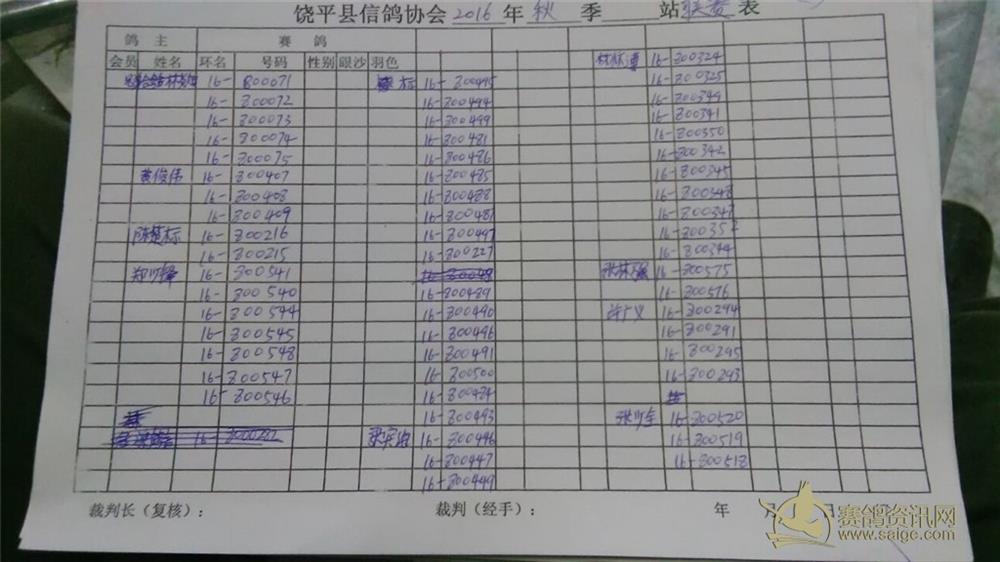 饶平县信鸽协会2016年秋季 站联赛表
鸽主 赛鸽
会员 姓名 环名 号码 性别 眼沙 羽色
16- 800071
16- 800072
16- 800073
16- 800074
16- 800075
黄俊伟 16- 800407
16- 800408
16- 800409
陈楚标 16- 800216
16- 800215
郑少锋 16- 800541
16- 800540
16- 800544
16- 800545
16- 800548
16- 800547
16- 800546
标 16- 800495
16- 800494
16- 800499
16- 800481
16- 800486
16- 800485
16- 800488
16- 800481
16- 800497
16- 800227
16- 800489
16- 800490
16- 800496
16- 800491
16- 800500
16- 800484
16- 800493
16- 800446
16- 800447
16- 800449
16- 800324
16- 800325
16- 800349
16- 800341
16- 800350
16- 800342
16- 800345
16- 800348
16- 800347
16- 800352
16- 800344
张林强 16- 800575
16- 800576
许广义 16- 800294
16- 800291
16- 800295
16- 800293
张少全 16- 800520
16- 800519
16- 800518
裁判长（复核）： 裁判（经手）： 年 月 日
赛鸽资讯网
www.saige.com